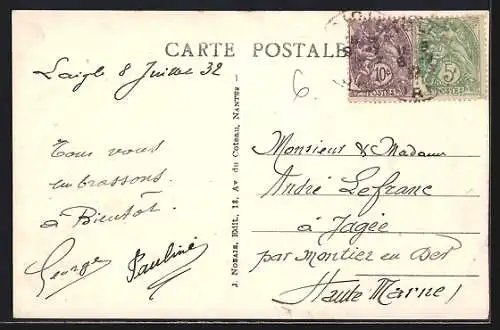 CARTE POSTALE
Laigle 8 Juillet 32
6.
10c
5c
POSTES
Tous vous
embrassons.
à Bientôt.
George Pauline
J. Nozais, Edit., 18, Av. du Coteau, Nantes
Monsieur & Madame
André Lefranc
à Jagée
par Montier en Der
Haute Marne)